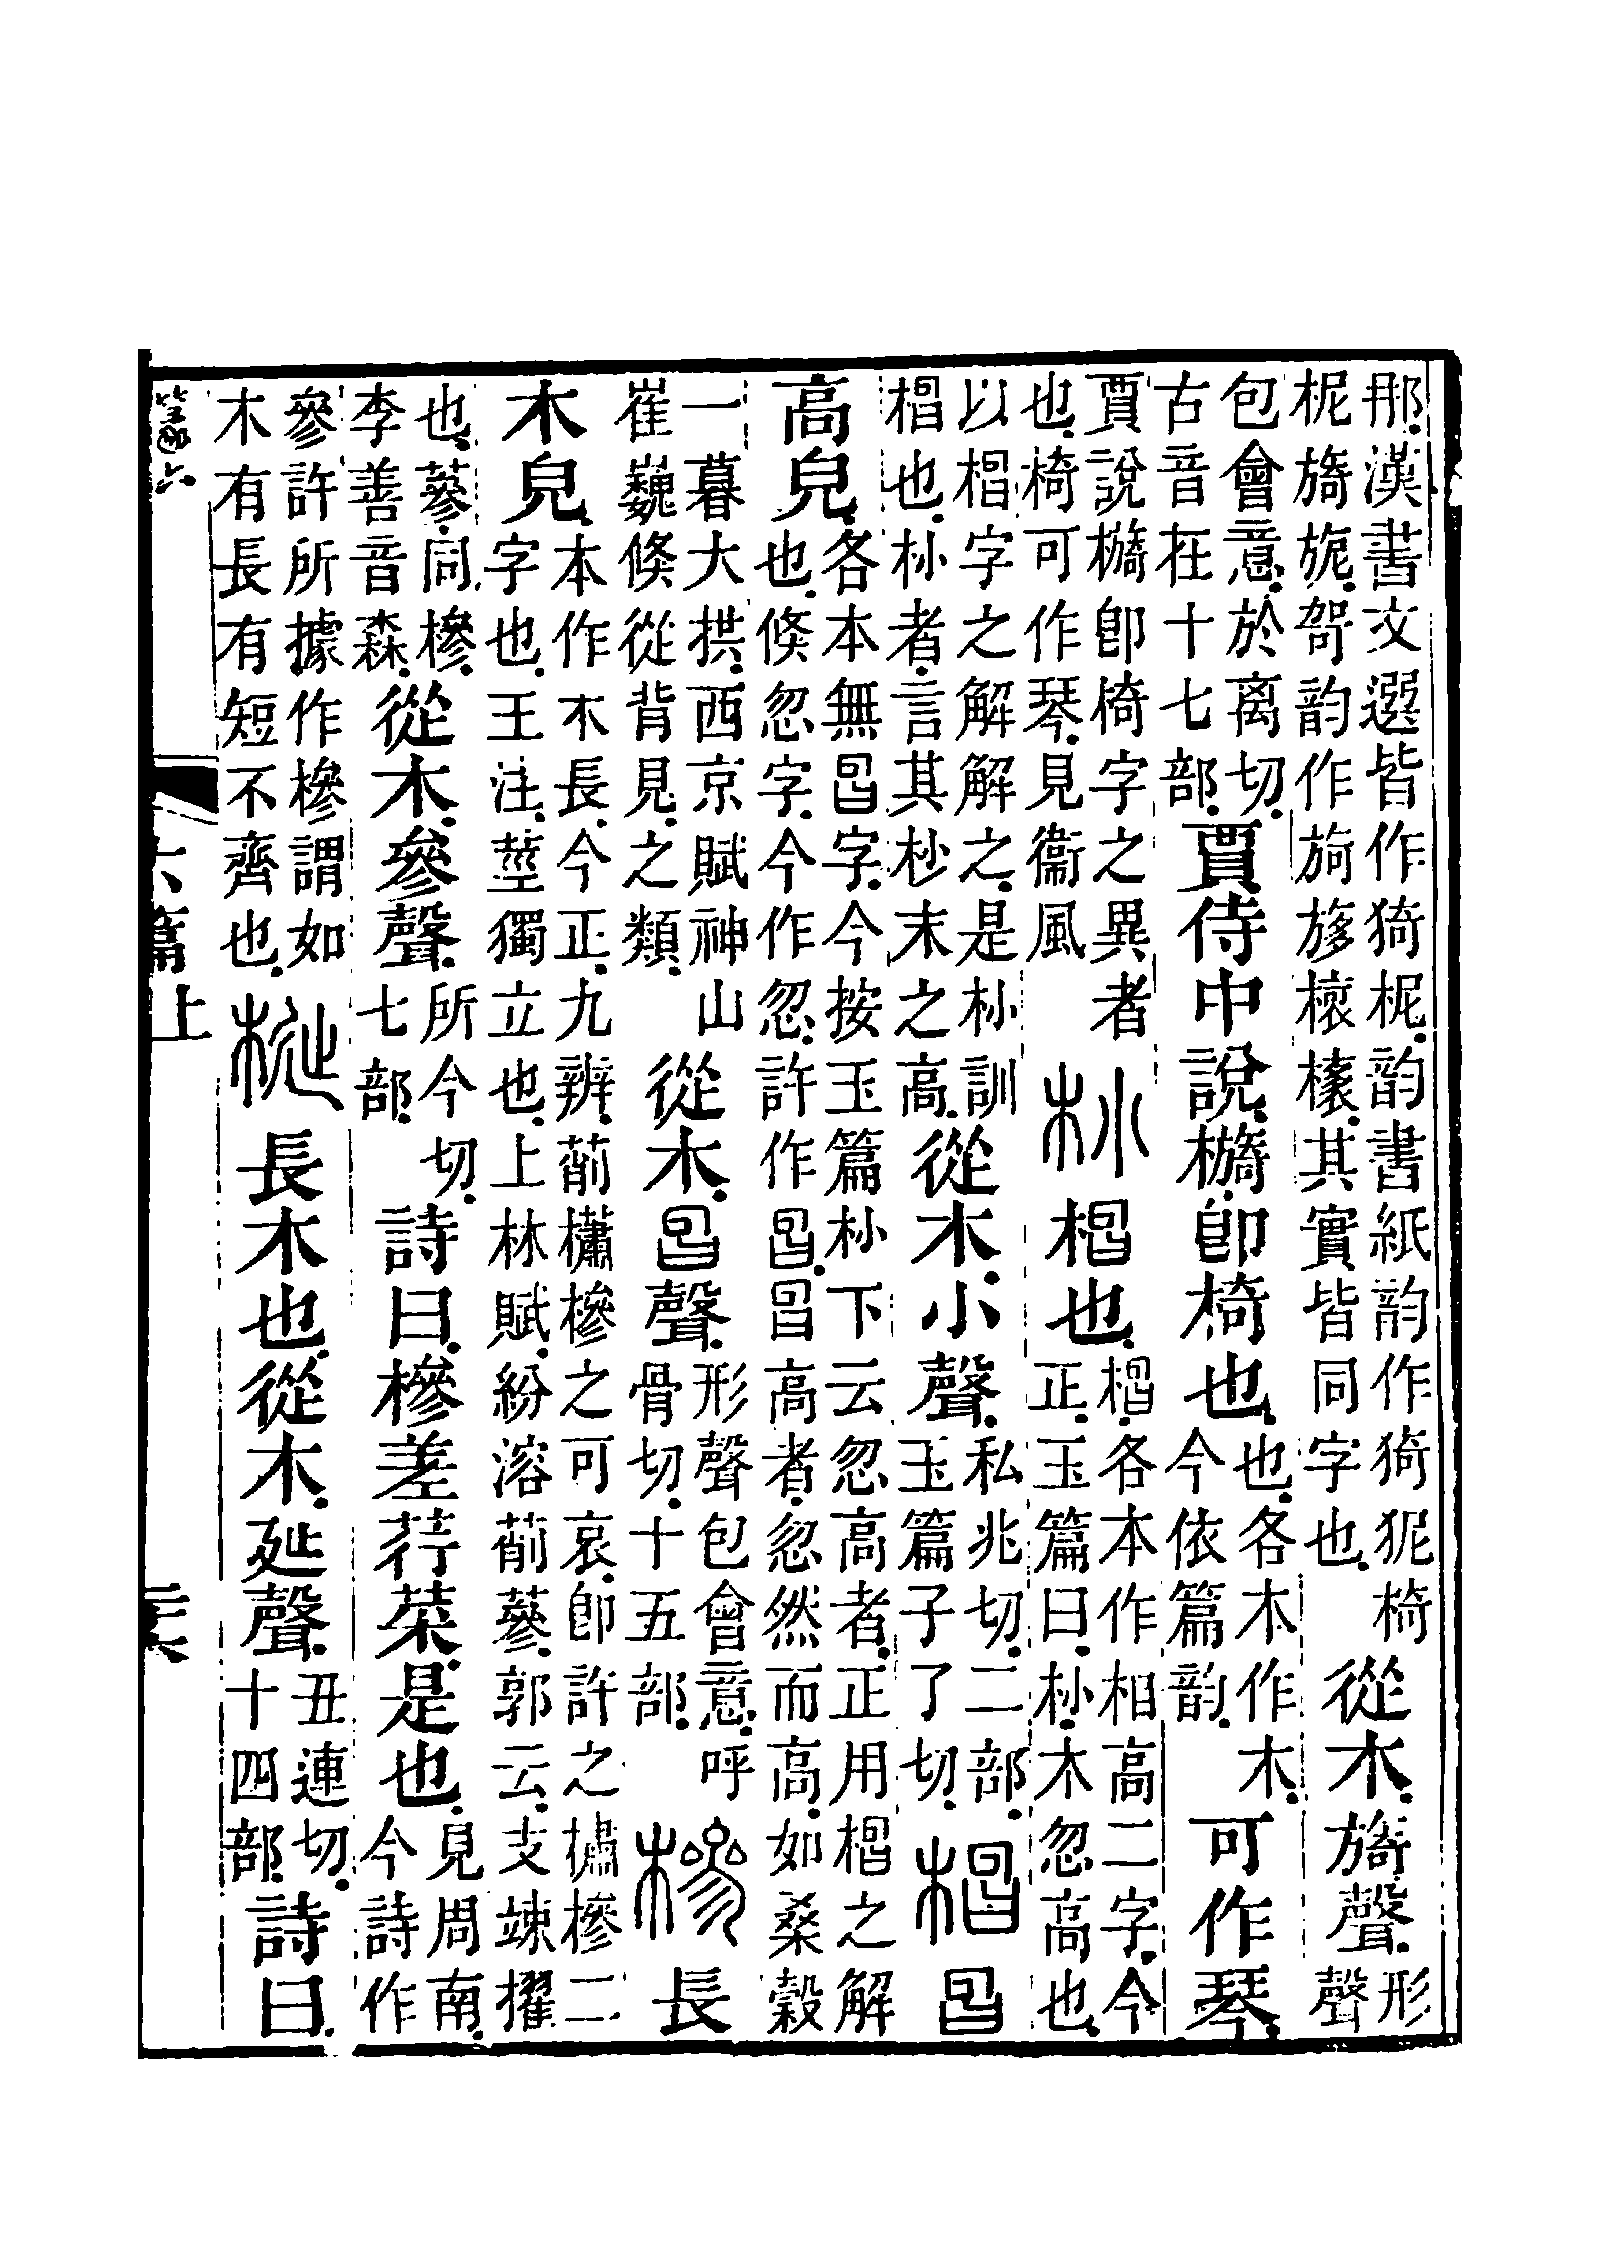 那.漢書文選皆作猗柅.韵書紙韵作猗狔椅
柅旖旎.哿韵作橠.其實皆同字也.
從木.旖聲.
形
聲
包會意.於离切.
古音在十七部.
賈侍中說.檹卽椅也.
也.各木作木.
今依篇韵.
可作琴.
賈說檹卽椅字之異者
也.椅可作琴.見衞風
𣏌㮯也.
㮯.各本作相高二字.今
正.玉篇曰.𣏌.木忽高也.
以㮯字之解解之.是𣏌訓
㮯也.𣏌者.言其杪末之高.
從木.小聲.
私兆切.二部.
玉篇子了切.
㮯曶
高皃.
各本無曶字.今按玉篇𣏌下云忽高者.正用㮯之解
也.倏忽字.今作忽.許作曶.曶高者.忽然而高.如桑穀
一暮大拱.西京賦神山
崔巍倏從背見.之類.
從木.曶聲.
形聲包會意.呼
骨切.十五部.
槮長
木皃.
本作木長.今正.九辨.萷櫹槮之可哀.卽許之橚槮二
字也.王注.莖獨立也.上林賦.紛溶萷蔘.郭云.支竦擢
也.蔘.同.槮.
李善音森.
從木.參聲.
所今切.
七部.
詩曰.槮差荇菜是也.
見周南.
今詩作
參許所據作槮謂如
木有長有短不齊也.
梴長木也.從木.延聲.
丑連切.
十四部.
詩曰.
六篇上